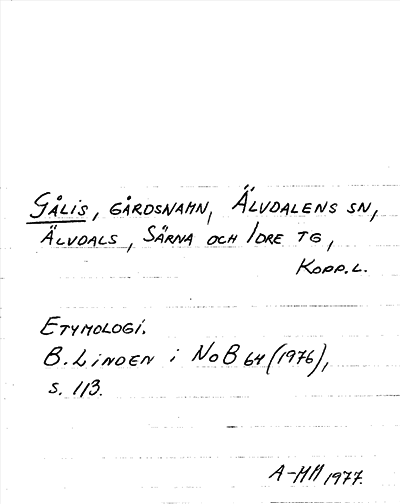 Gålis, gårdsnamn, Älvdalens sn,
Älvdals, Särna och Idre tg,
Kopp.l.
Etymologi.
B. Linden i NoB 64 (1976),
s. 113.
A-MH 1977.